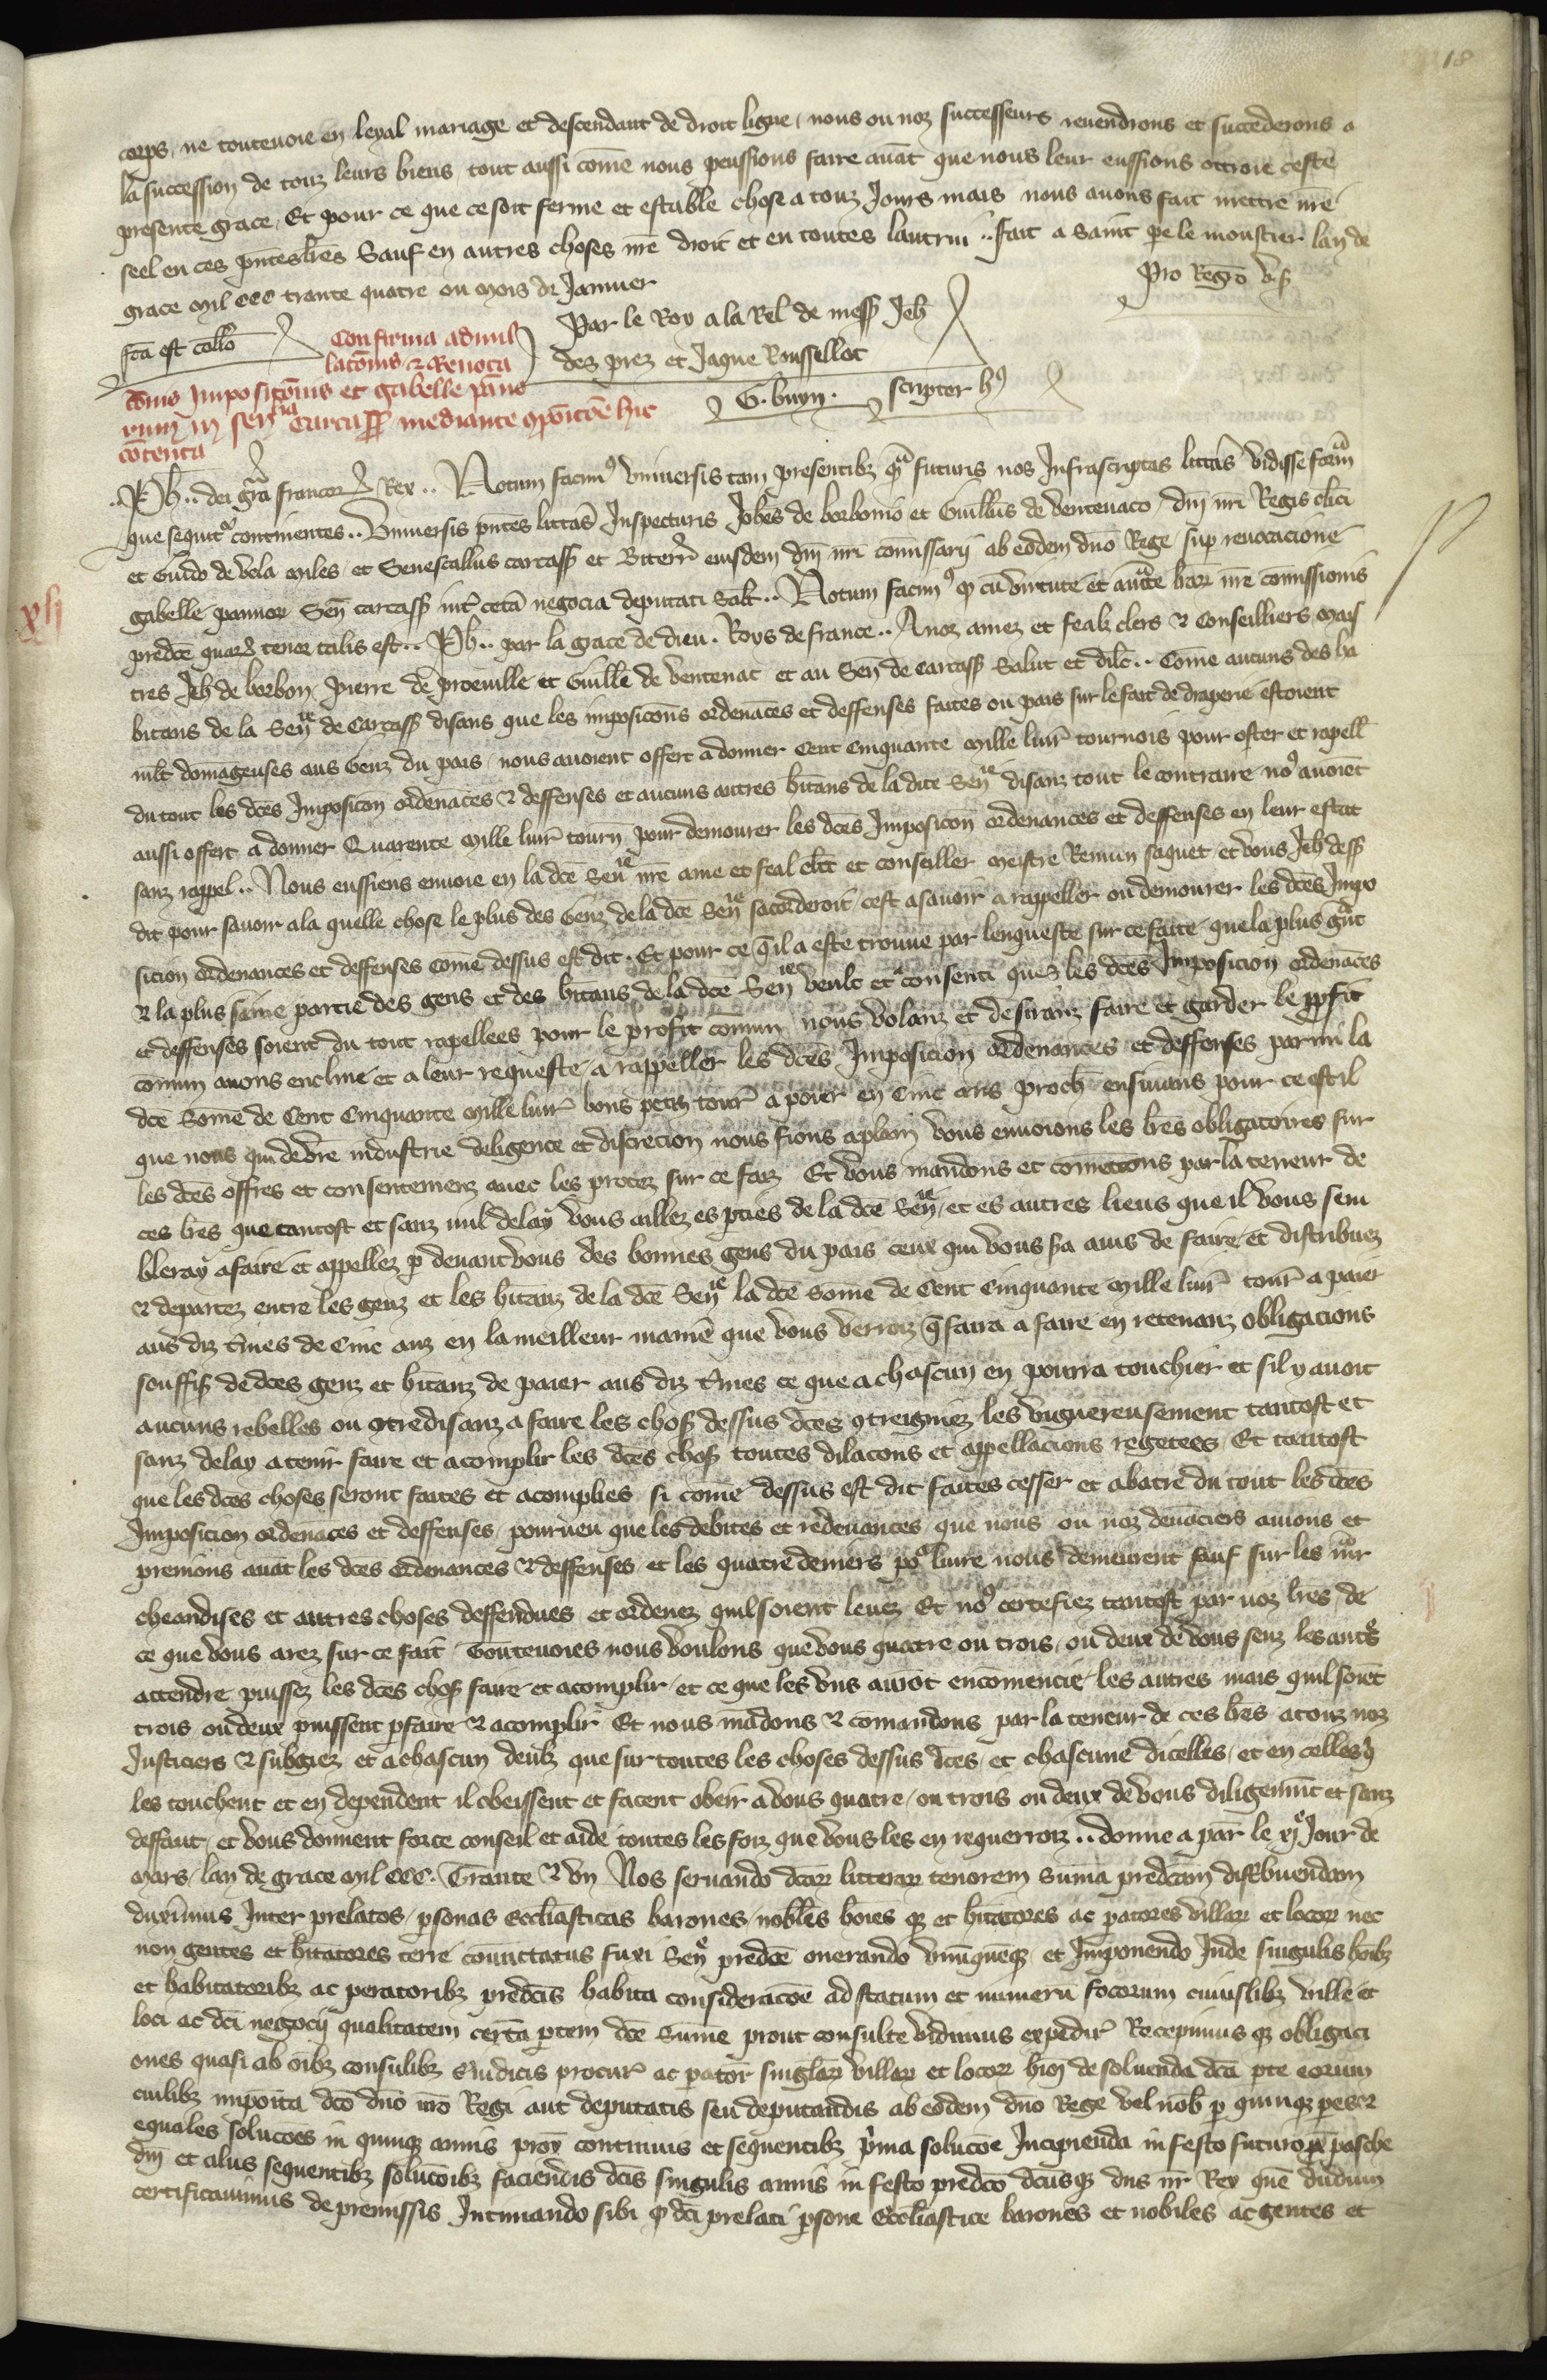 18
corps, ne toutevoie en leyal mariage et descendant de droit ligne, nous ou noz successeurs revendrons et succederons a
la succession de touz leurs biens, tout aussi come nous peussions faire avat que nous leur eussions ottroie ceste
presente grace, Et pour ce que ce soit ferme et estable chose a touz Jours mais nous avons fait mettre nre
seel en ces pntes lres Sauf en autres choses nre droit et en toutes lautrui .. fait a Saint pe le moustier lan de
grace mil ccc trante quatre ou mois de Janvier
Pro Regro
fca est collo
Par le Roy a la Rel de mess Jeh
des prez et Jaque Rousselot
G. buyn. scriptor h9
Confirma adnul
lacois & Revoca
cois Imposicois et gabelle pano
rum in sen Carcass mediante opoicoe hic
cotenta
xlj
.. Ph .. dei gra francor Rex .. Notum facim9 universis tam presentibz qua futuris nos Infrascriptas litteras vidisse forma
que sequit continentes .. Universis pntes litteras Inspecturis Johes de borbonio et Guillus de ventenaco, dni nri Regis clici
et Guido de vela miles et Senescallus carcass et Biterr eiusdem dni nri comissarii ab eodem dno Rege sup revocacione
gabelle pannor Sen carcass int ceta negocia deputati Salt .. Notum facim9 q cu virtute et aucte har nre comissionis
predce quar tenor talis est .. Ph .. par la grace de dieu . Roys de france .. A noz amez et fealz clers & Conseilliers mais
tres Jeh de borbon, pierre de proeville et Guille de ventenac et au Sen de carcass Salut et dilc .. Come aucuns des ha
bitans de la Senie de Carcass disans que les imposicons ordenaces et deffenses faites ou pais sur le fait de draperie estoient
mlt domageuses aus Genz du pais, nous avoient offert a donner Cent Cinquante mille livr tournois pour oster et rapell
du tout les dces Imposicon ordenaces & deffenses et aucuns autres hitans de la dite Senie disanz tout le contraire no9 avoiet
aussi offert a donner Quarente mille livr tourn pour demourer les dces Imposicon ordenances et deffenses en leur estat
sanz rappel .. Nous eussiens envoie en la dce Senie nre ame et feal clerc et conseiller meistre Remun saquet et vous Jeh dess
dit pour savoir a la quelle chose le plus des Genz de la dce Senie sacorderoit, cest a savoir a rappeller ou demourer les dces Impo
sicion ordenances et deffenses come dessus est dit . Et pour ce qil a este trouve par lenqueste sur ce faite que la plus grat
& la plus saine partie des gens et des hitans de la dce Senie veult et consenti quez les dces Imposicion ordenaces
et deffenses soient du tout rapellees pour le profit comun nous volanz et desiranz faire et garder le pfit
comun avons encline et a leur requeste, a rappeller les dces Imposicion ordenances et deffenses parmi la
dce Some de Cent Cinquante mille livr bons petiz tour a poier en Cinc ans proch ensuians pour ce est il
que nous qui de vre industrie deligence et discrecion nous fions a plain vous envoions les lres obligatoires sur
les dces offres et consentemenz avec les procez sur ce faiz Et vous mandons et cometons par la teneur de
ces lres que tantost et sanz nul delay vous aillez es pties de la dce Senie, et es autres lieus que il vous sem
bleray a faire et appellez p devant vous des bonnes gens du pais ceux qui vous sra avis de faire et distribuez
& departez entre les genz et les hitanz de la dce Senie la dce Some de Cent Cinquante mille livr tour a paier
aus diz tmes de Cinc anz en la meilleur manie que vous verroiz q faira a faire en retenanz obligacions
souffis de dces genz et hitanz de paier aus diz tmes ce que a chascun en pourra touchier et sil y avoit
aucuns rebelles ou otredisanz a faire les chos dessus dces otreigniez les vigueureusement tantost et
sanz delay a tenir faire et acomplir les dces chos toutes dilacons et appellacions regetees, Et tantost
que les dces choses seront faites et acomplies si come dessus est dit faites cesser et abatre du tout les dces
Imposicion ordenaces et deffenses, pourveu que les debites et redevances, que nous ou noz devaciers avions et
prenions avat les dces ordenances & deffenses et les quatre deniers po livre nous demeurent sauf sur les mar
cheandises et autres choses deffendues et ordenez quil soient levez Et no9 certefiez tantost par voz lres, de
ce que vous arez sur ce fait Toutevoies nous voulons que vous quatre ou trois, ou deux de vous senz les autrs
attendre puissez les dces chos faire et acomplir, et ce que les uns auront encomencie les autres mais quil soiet
trois ou deux puissent pfaire & acomplir Et nous madons & comandons par la teneur de ces lres a touz noz
Justiciers & subgiez et a chascun deulz que sur toutes les choses dessus dces, et chascune dicelles, et en celles q
les touchent et en dependent il obeissent et facent obeir a vous quatre, ou trois ou deux de vous diligenmt et sanz
deffaut, et vous donnent force conseil et aide toutes les foiz que vous les en requerroiz .. donne a par le xje Jour de
mars, lan de grace mil ccc. Trante & un Nos servando dcar litterar tenorem Suma predcam distribuendam
duximus Inter prelatos, psonas ecclesiasticas barones, nobles hoies qz et hitatores ac patores villar et locor nec
non gentes et hitatores terre comictatus fuxi Sene predce onerando unuquęqz et Imponendo Inde singulis hoibz
et habitatoribz ac peratoribz predcis habita consideracoe ad statum et numeru focorum cuiuslibz ville et
loci ac dci negocii qualitatem certa ptem dce Sume prout consulte vidimus expedir Recepimus qz obligaci
ones quasi ab oibz consulibz Sindicis procur ac pator singlar villar et locor hm de solvenda dca pte eorum
cuilibz imposita dco dno nro Regi aut deputatis seu deputandis ab eodem dno Rege vel nob p quinqz pes &
equales solucoes in quinqz annis prox continuis et sequentibz pma solucoe Incipienda in festo futuro px pasche
dni et aliis sequentibz solucoibz faciendis dcis singulis annis in festo predco dcusqz dns nr Rex que dudum
certificavimus de premissis Intimando sibi q dci prelati psone Ecclesiastice barones et nobiles ac gentes et